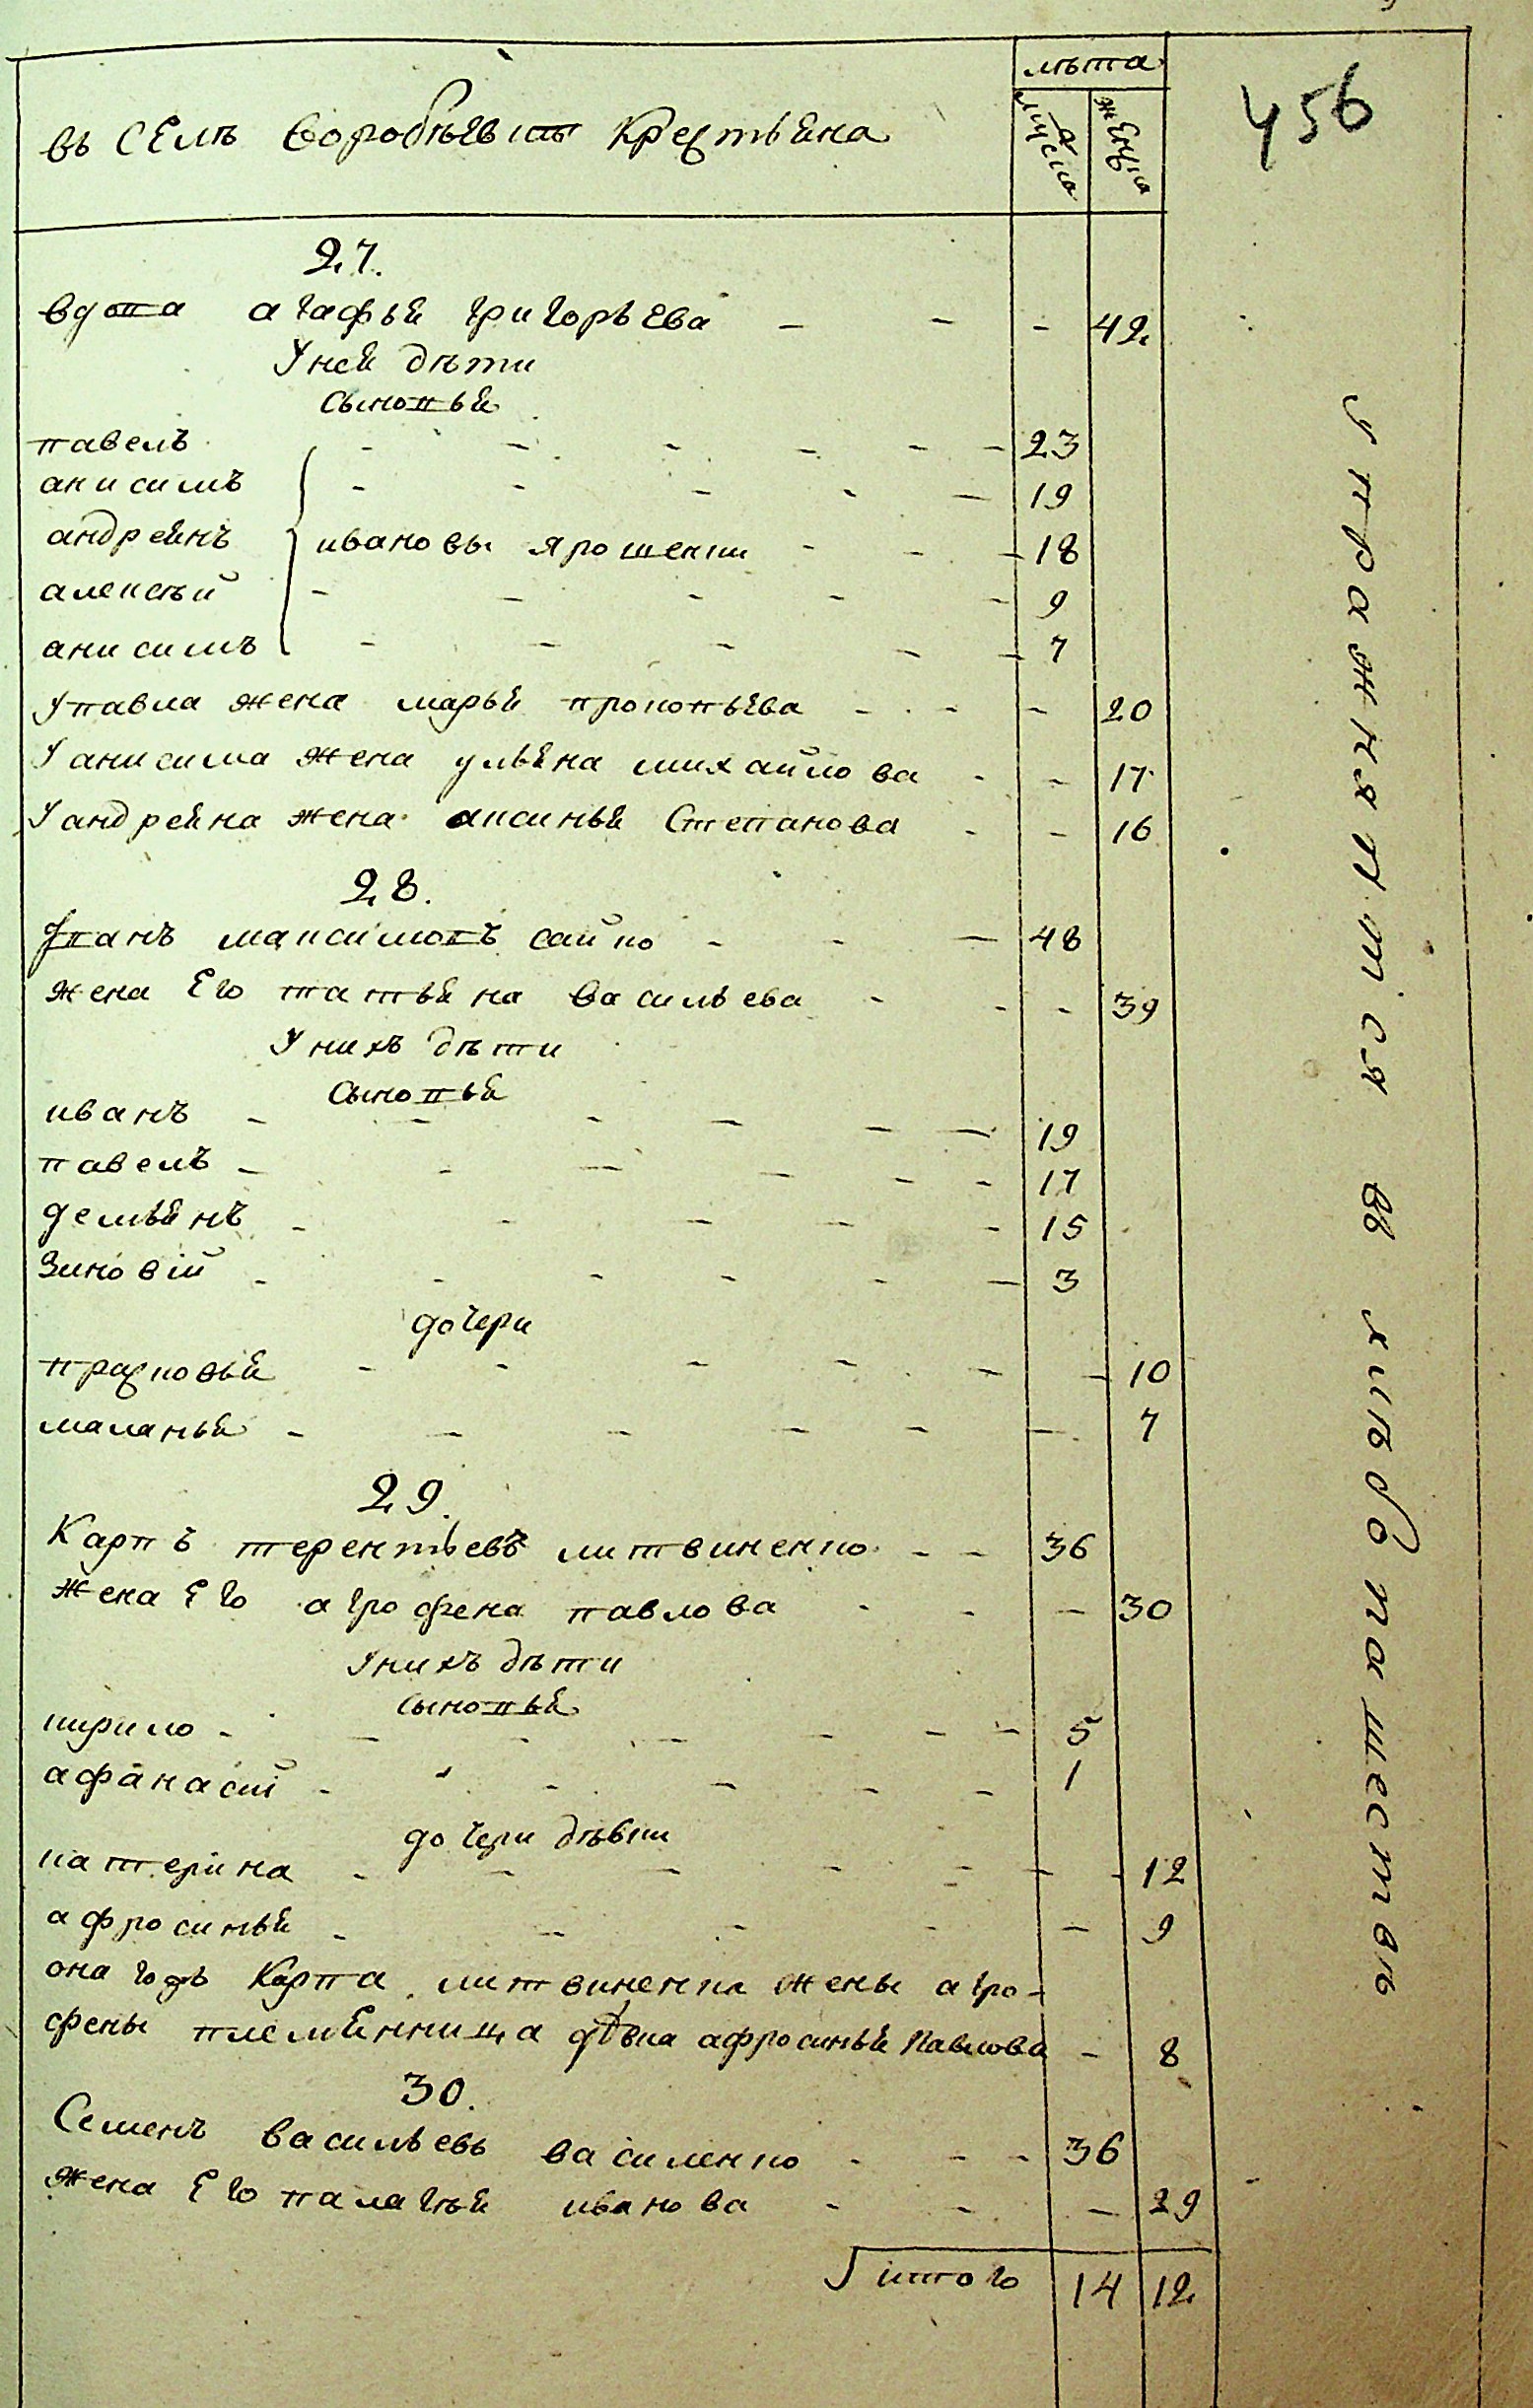 лѣта
456
въ селѣ воробѣевки крестьяна
мужска
женска
27.
вдова агафья григорьева - - - 42
У ней дѣти
сыновья
павелъ - - - - - - 23
анисимъ - - - - - 19
андреянъ ивановы ярошенки - - - 18
алексѣй - - - - - 9
анисимъ - - - - - 7
У павла жена марья прокопьева - - - 20
У анисима жена ульяна михайлова - - 17
У андреяна жена аксинья Степанова - - 16
28.
Иванъ максимовъ сайко - - - 48
жена Его татьяна васильева - - - 39
У нихъ дѣти
сыновья
иванъ - - - - - - 19
павелъ - - - - - - 17
демьянъ - - - - - 15
Зиновій - - - - - - 3
дочери
прасковья - - - - - - 10
маланья - - - - - - 7
29.
Карпъ терентьевъ литвиненко - - 36
жена Его агрофена павлова - - - 30
У нихъ дѣти
сыновья
кирило - - - - - - - 5
афанасій - - - - - - 1
дочери дѣвки
катерина - - - - - - - 12
афросинья - - - - - 9
она годъ Карпа литвиненка жены агро-
фены племянница дѣвка афросинья Павлова - 8
30.
Семенъ васильевъ василенко - - - 36
жена Его палагѣя иванова - - - 29
итого 14 12
упражняются въ хлѣбопашествѣ